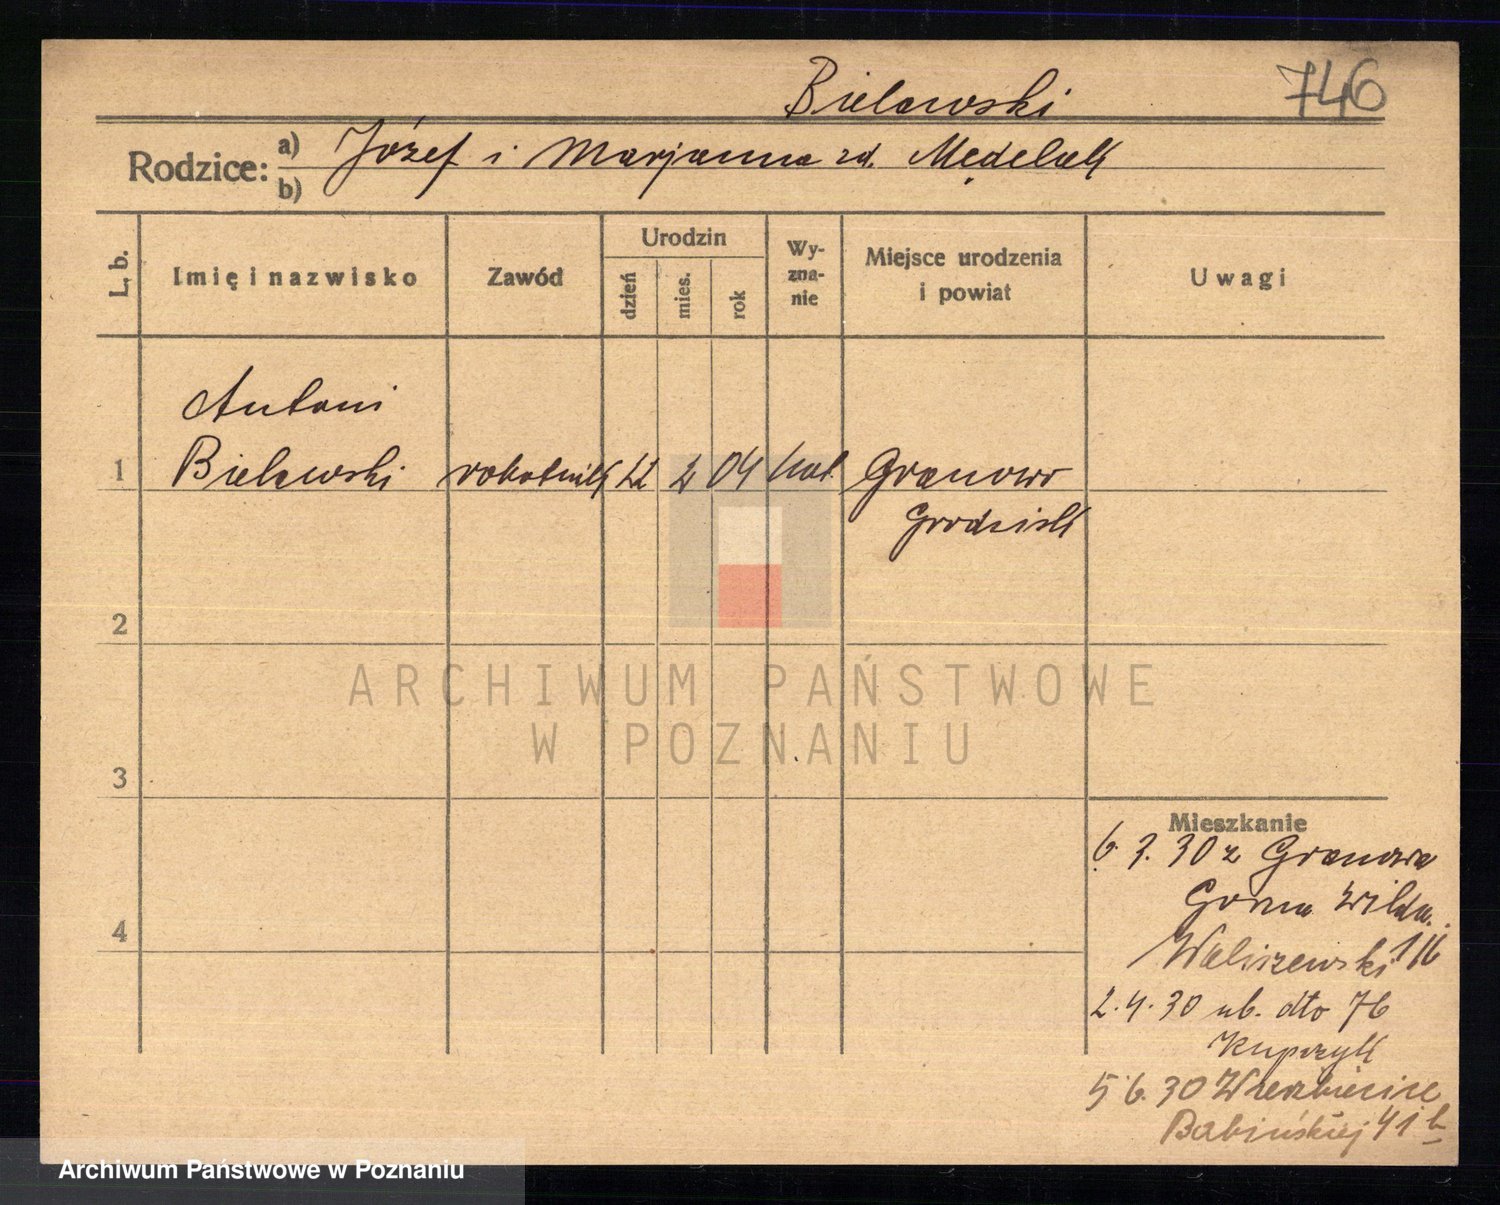 Bielawski 746
Rodzice: a) Józef i Marjanna zd. Mędelak
b)
L. b. Imię i nazwisko Zawód Urodzin dzień mies. rok Wy-zna-nie Miejsce urodzenia i powiat Uwagi
Antoni
1 Bielawski robotnik 22 2 04 kat. Granowo
Grodzisk
2
ARCHIWUM PAŃSTWOWE
W POZNANIU
3
Mieszkanie
6. 3. 30 z Granowa
Górna Wilda
Waliszewski 116
4
2. 4. 30 ub. dto 76
Kupczyk
5 6. 30 Wierzbiecice
Babińskiej 41 b
Archiwum Państwowe w Poznaniu